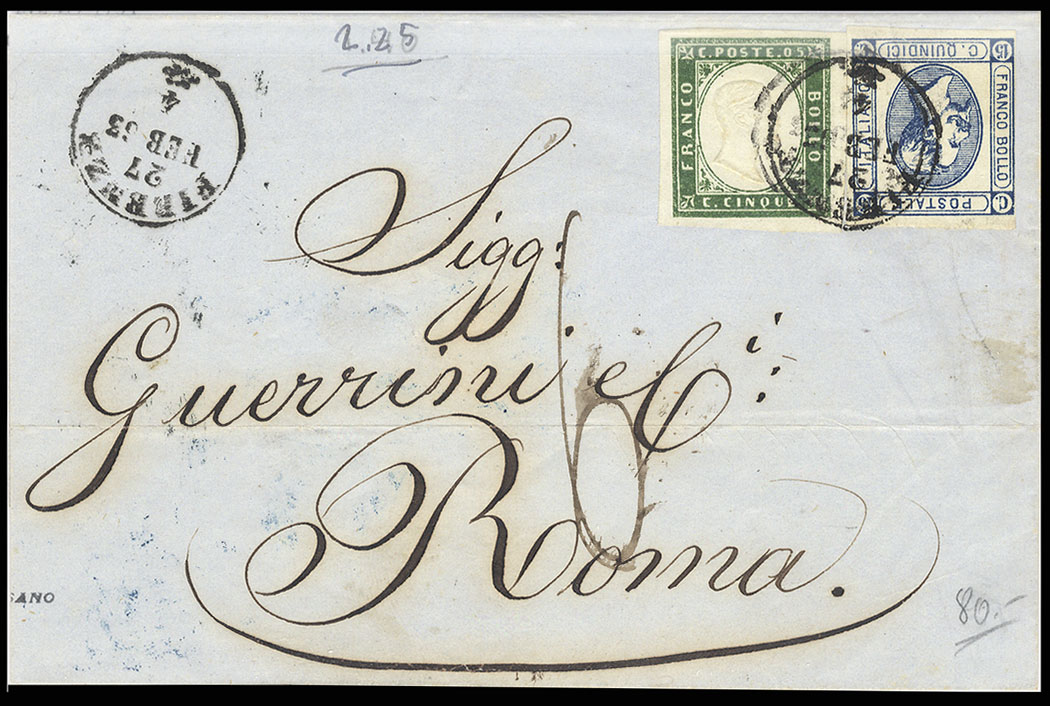 2.25
FIRENZE
27
FEB 63
4
C. POSTE. 05
FRANCO
BOLLO
C. CINQUE
15 C. QUINDICI
FRANCO BOLLO
POSTALE
ITALIANO
C.
27
Sigg:
Guerrini e C.i:
6
Roma.
SANO
80.-